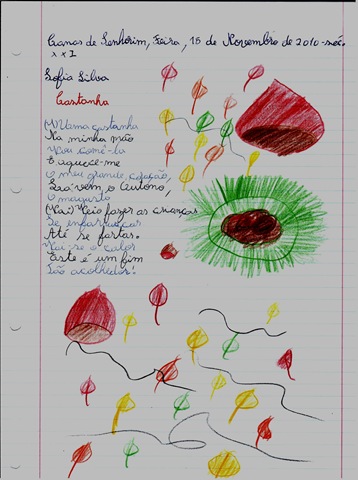 Canas de Senhorim, Feira, 15 de Novembro de 2010 - séc.
x x I
Sofia Silva
Castanha
Uma castanha
Na minha mão
Vou comê-la
E aquece-me
O meu grande coração,
Lá vem o Outono,
O magusto
Vai Veio fazer as crianças
Se enfarruscar
Até se fartar.
Vai-se o calor
Este é um fim
Tão acolhedor!